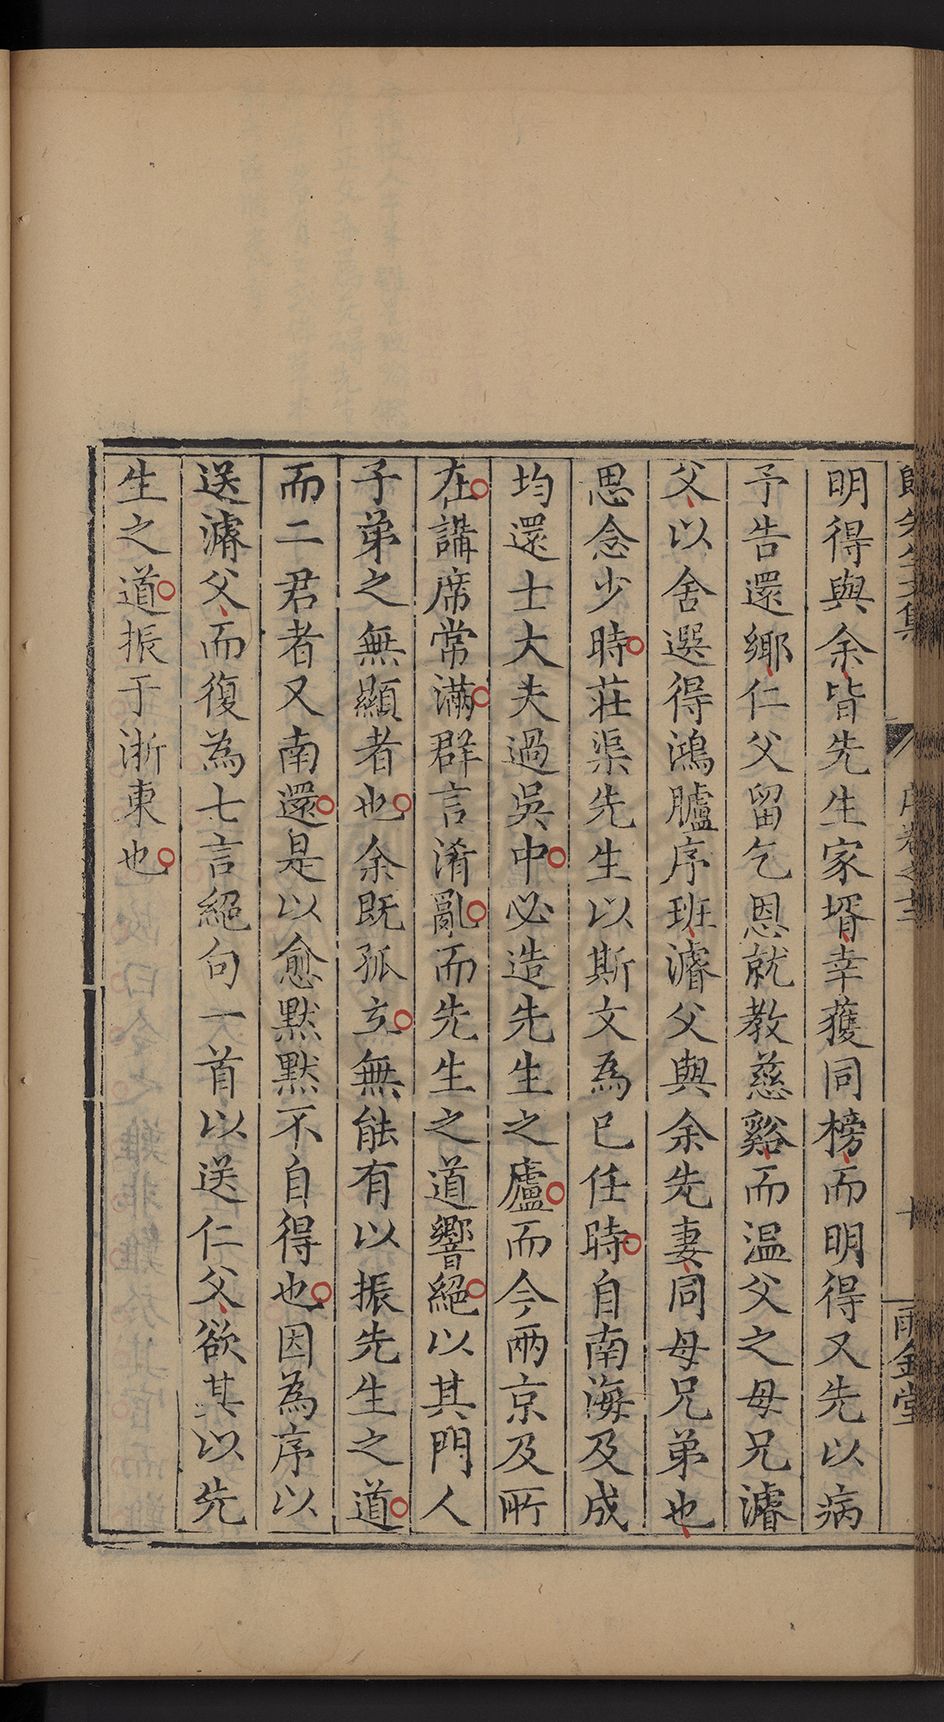 明得與余皆先生家壻幸獲同榜而明得又先以病
予告還鄉仁父留乞恩就教慈谿而温父之母兄濬
父以舍選得鴻臚序班濬父與余先妻同母兄弟也
思念少時莊渠先生以斯文為已任時自南海及成
均還士大夫過吳中必造先生之廬而今兩京及所
在講席常滿群言淆亂而先生之道響絕以其門人
子弟之無顯者也余既孤立無能有以振先生之道
而二君者又南還是以愈默默不自得也因為序以
送濬父而復為七言絕句一首以送仁父欲其以先
生之道振于浙東也